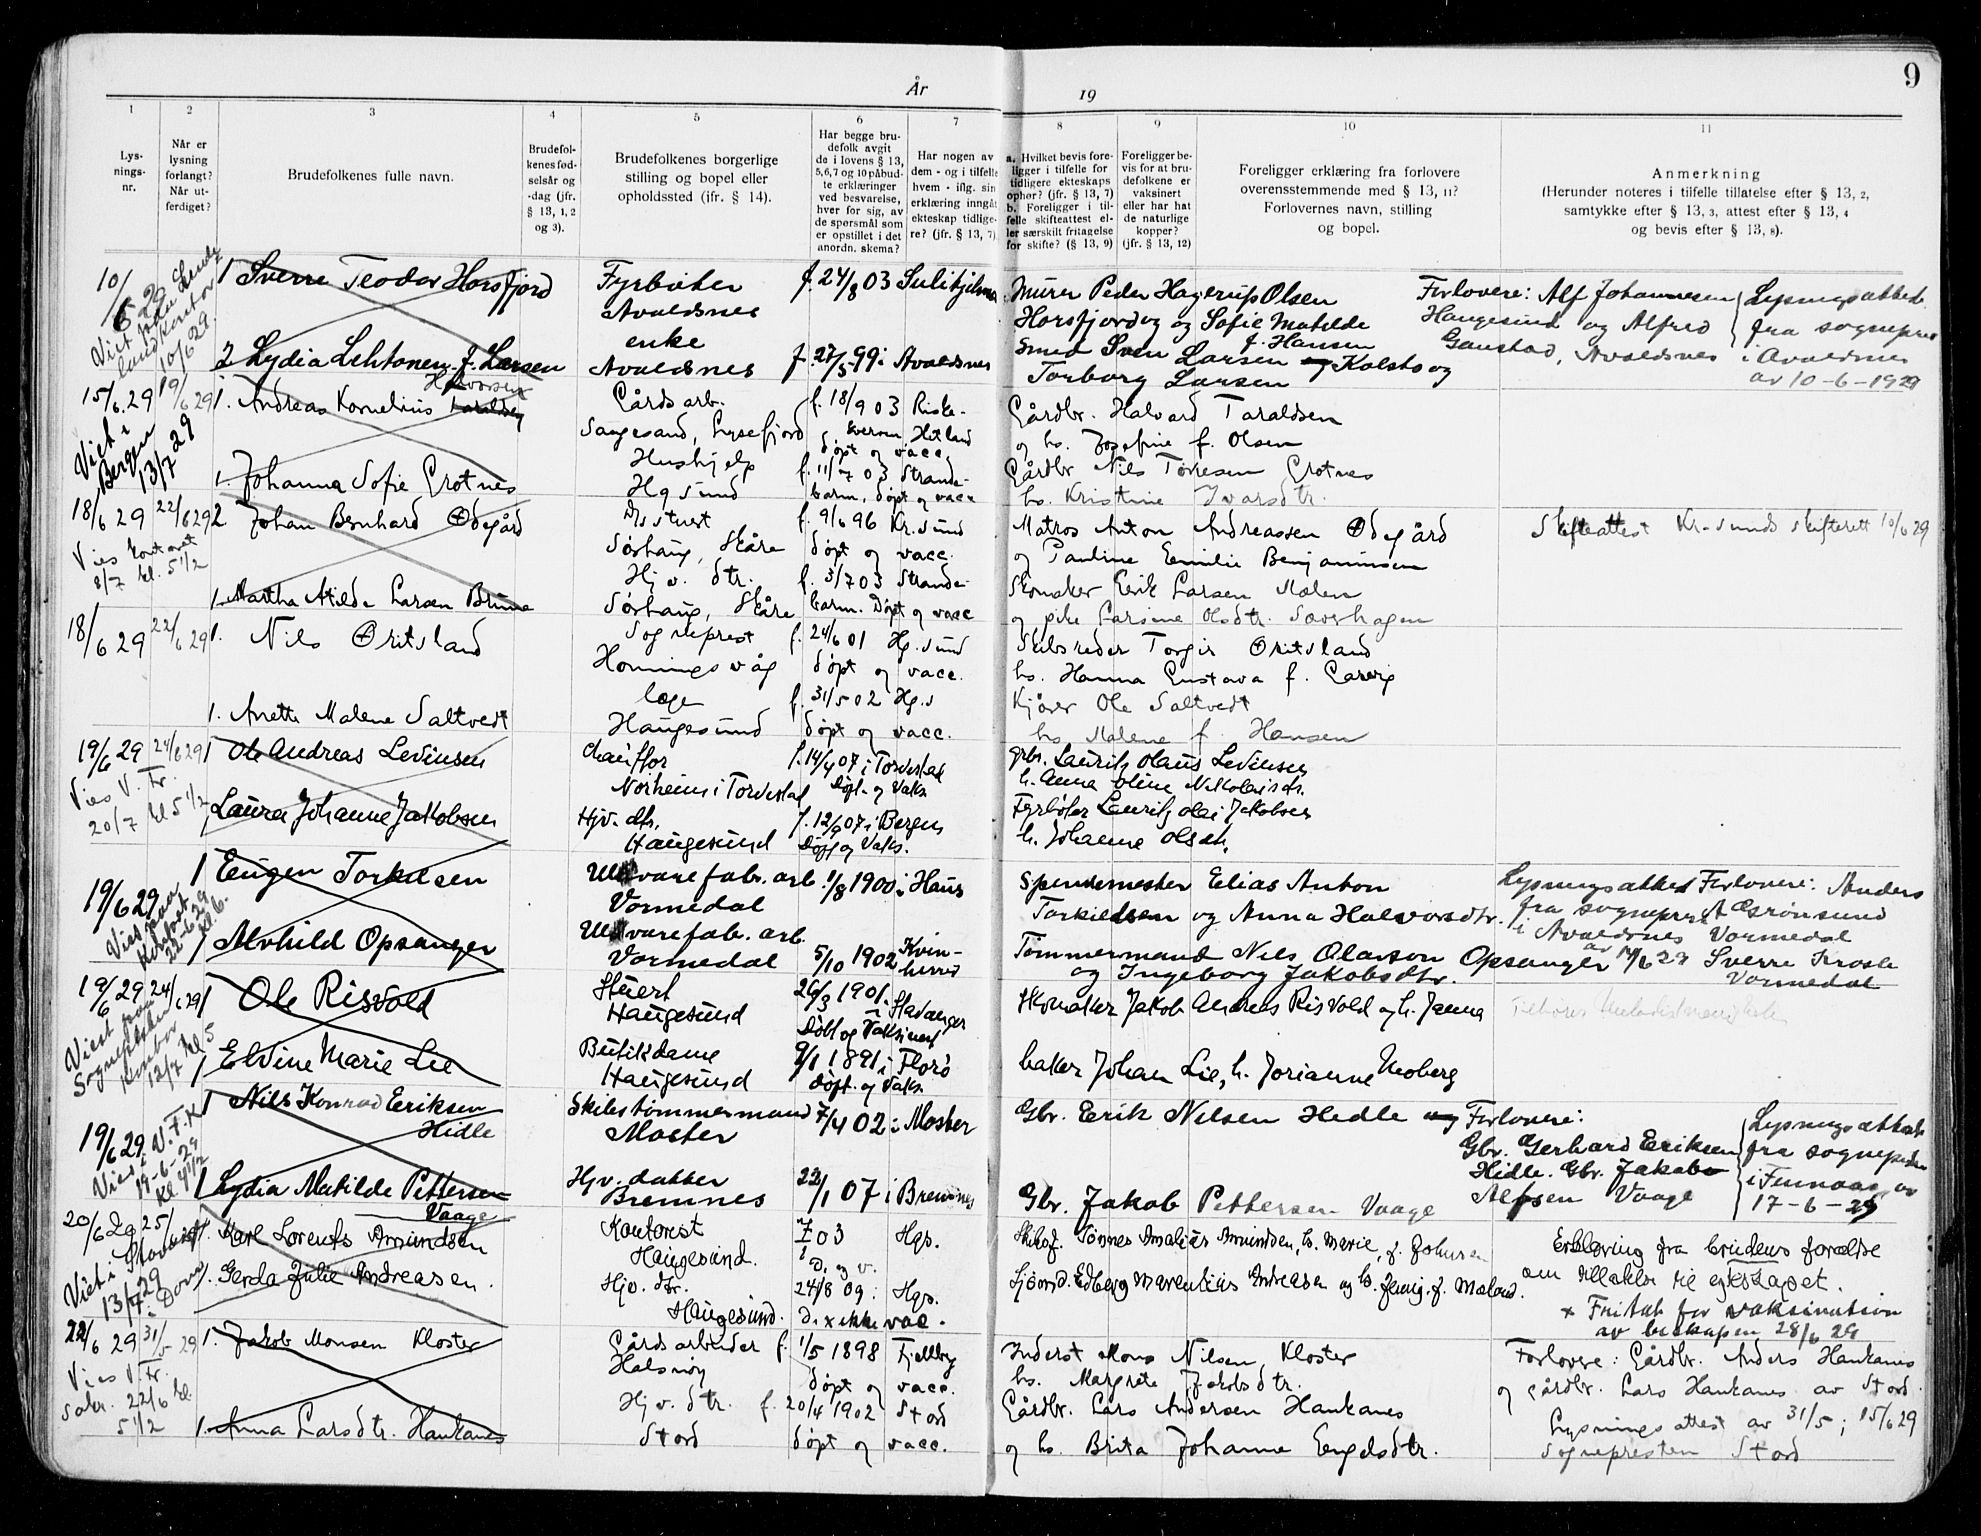 9
År
19
1
2
3
4
5
6
7
8
9
10
11
Lys-
nings-
nr.
Når er
lysning
forlangt?
Når ut-
ferdiget?
Brudefolkenes fulle navn.
Brudefol-
kenes fød-
selsår og
-dag (jfr.
§ 13, 1, 2
og 3).
Brudefolkenes borgerlige
stilling og bopel eller
opholdssted (ifr. § 14).
Har begge bru-
defolk avgit
de i lovens § 13,
5,6,7 og 10 påbud-
te erklæringer
ved besvarelse,
hver for sig, av
de spørsmål som
er opstillet i det
anordn. skema?
Har nogen av
dem - og i tilfelle
hvem - iflg. sin
erklæring inngåt
ekteskap tidlige-
re? (jfr. § 13, 7)
a. Hvilket bevis fore-
ligger i tilfelle for
tidligere ekteskaps
ophør? (jfr. § 13, 7)
b. Foreligger i til-
felle skifteattest el-
ler særskilt fritagelse
for skifte? (§ 13, 9)
Foreligger be-
vis for at bru-
defolkene er
vaksinert
eller har hat
de naturlige
kopper?
(jfr. § 13, 12)
Foreligger erklæring fra forlovere
overensstemmende med § 13, 11?
Forlovernes navn, stilling
og bopel.
Anmerkning
(Herunder noteres i tilfelle tillatelse efter § 13, 2,
samtykke efter § 13, 3, attest efter § 13, 4
og bevis efter § 13, 8).
10/6 29
1 Sverre Teodor Horsfjord
Fyrbøter
Avaldsnes
f. 24/8 03 Sulitjelma
Murer Peder Hagerup Olsen
Horsfjord og Sofie Matilde
f. Hansen
Forlovere: Alf Johannesen
Haugesund og Alfred
Gaustad, Avaldsnes
Lysningsattest
fra sognepres
i Avaldsnes
av 10-6-1929
10/6 29.
2 Lydia Lehtonen f. Larsen
enke
Avaldsnes
f. 27/5 99 i Avaldsnes
Smed Sven Larsen Kolstø og
Torborg Larsen
15/6.29 19/6 29
1. Andreas Kornelius Halvorsen
Gårdsarb.
Saugesand, Lysefjord
f. 18/9 03 Riske-
kvernn, Hetland
døpt og vacc.
Gårdbr. Halvard Taraldsen
og hs. Josefine f. Olsen
Viet i
Bergen
13/7 29
1. Johanna Sofie Grotnes
Hushjelp
Hgsund
f. 11/7 03 Strande-
barm, døpt og vacc
Gårdbr Nils Torresen Grotnes
hs. Kristine Ivarsdtr.
18/6 29 22/6 29
2 Johan Bernhard Ødegård
Sørhaug, Skåre
f. 9/6 96 Kr.sund
døpt og vacc.
Matros Anton Andreassen Ødegård
og Pauline Emilie Benjaminsen
Skifteattest Kr-sunds skifterett 10/6 29
Vies kontoret
8/7 kl. 5 1/2
1. Martha Atilda Larsen Brune
Hjv. dtr.
Sørhaug, Skåre
f. 3/7 03 Strande-
barm. Døpt og vacc
Skomaker Erik Larsen Mælen
og pike Larsine Olsdtr.
18/6 29 22/6 29
1. Nils Øritsland
Sogneprest
Honningsvåg
f. 24/6 01 Hg.sund
døpt og vacc.
Skibsreder Torger Øritsland
hs. Hanna Gustava f.
1. Anette Malene Saltvedt
læge
Haugesund
f. 31/5 02 Hg.s
døpt og vacc.
Kjører Ole Saltvedt
hs Malene f. Hansen
19/6 29 24/6 29
1 Ole Andreas Levinsen
Chauffør
Norheim i Torvestad
f. 14/4 07 i Torvestad
Døpt og Vaks.
grbr. Lauritz Olaus Levinsen
h. Anna Oline
Vies V. Fr.
20/7 kl 5 1/2
1 Laura Johanne Jakobsen
Hjv. dtr.
Haugesund
f. 12/9 07 i Bergen
Døpt og Vaks.
Fyrbøter Lauritz Olai Jakobsen
h. Johanne Olsdtr.
19/6 29
1 Eugen Torkilsen
Ullvarefabr. arb.
Vormedal
1/8 1900 i Haus
Spindemester Elias Anton
Torkildsen og Anna Halvorsdtr.
Lysningsattest Forlovere: Anders
fra sogneprest Grønsund
i Avaldsnes Vormedal
1 Alvhild Opsanger
Ullvarefab. arb.
Vormedal
5/10 1902 Kvin-
herred
Tømmermand Nils Olavson Opsanger
og Ingeborg Jakobsdtr.
Sverre
Vormedal
19/6 29 24/6 29
1 Ole Risvold
Stuert
Haugesund
26/3 1901 i Stavanger
Døbt og Vaksinert
Skomaker Jakob Andreas Risvold og h. Janna
Viest paa
12/7 kl 5
1 Elvine Marie Lie
Butikdame
Haugesund
9/1 1891 i Florø
Døpt. og Vaks.
baker Johan Lie, h. Jorianne Moberg
19/6 29
1 Nils Konrad Eriksen
Hidle
Skibstømmermand
Moster
7/4 02 i Moster
Gbr. Erik Nilsen Hidle
Forlovere:
Gbr. Gerhard Eriksen
Hidle. Gbr. Jakob
Alfsen Vaage
Lysningsattest
fra sognepres
i Finnaas av
17-6-29
1 Lydia Matilde Pettersen
Vaage
Hjv. datter
Bremnes
22/1 07 i Bremnes
Gbr. Jakob Pettersen Vaage
20/6 29 25/
Karl Lorents Amundsen
Kontorist
Haugesund.
03 Hgs.
D. og v.
Viet i
13/7 29
1. Gerda Julie Andreasen.
Hjv. dtr.
Haugesund.
24/8 09. Hgs.
D. x ikke vac.
Erklæring fra brudens forældre
om tillatelse til egteskapet.
x Fritat for vaksination
av biskopen 28/6 29
22/6 29 31/5 29
1. Jakob Monsen Kloster
Gårdsarbeider
Halsnøy
f. 1/5 1898 Fjellberg
døpt og vacc.
Inderst Mons Nilsen Kloster
hs. Margrete Jakobsdtr.
Forlovere: Gårdbr. Anders Haukanes
og gårdbr. Lars Haukanes av Stord.
Vies V. Fr.
22/6 kl.
5 1/2
1. Anna Larsdtr. Haukanes
Hjv. dtr.
Stord
f. 20/4 1902 Stord
døpt og vacc.
Gårdbr. Lars Andersen Haukanes
og hs. Brita Johanne Engelsdtr.
Lysningsattest av 31/5; 15/6 29
Sognepresten Stord